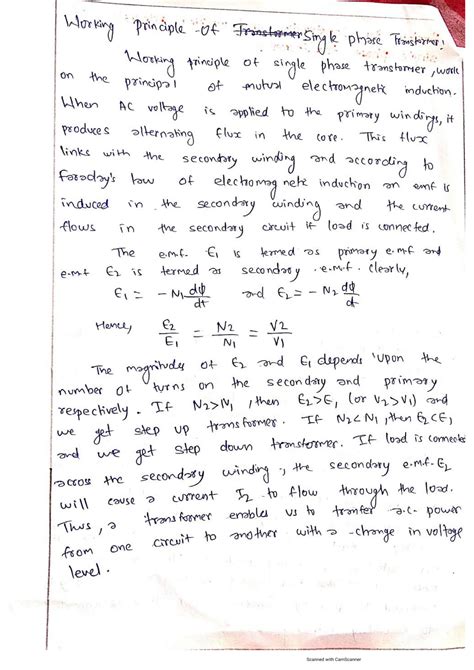 Working principle of Transformer Single phase Transformer.
Working principle of single phase transformer, work
on the principal of mutual electromagnetic induction.
When AC voltage is applied to the primary windings, it
produces alternating flux in the core. This flux
links with the secondary winding and according to
faraday's law of electromagnetic induction an emf is
induced in the secondary winding and the current
flows in the secondary circuit if load is connected.
The e.m.f. E1 is termed as primary e.m.f and
e.m.f E2 is termed as secondary e.m.f. Clearly,
E1 = - N1 dφ/dt and E2 = - N2 dφ/dt
Hence, E2/E1 = N2/N1 = V2/V1
The magnitudes of E2 and E1 depends upon the
number of turns on the secondary and primary
respectively. If N2>N1, then E2>E1 (or V2>V1) and
we get step up transformer. If N2<N1, then E2<E1
and we get step down transformer. If load is connected
across the secondary winding, the secondary e.m.f. E2
will cause a current I2 to flow through the load.
Thus, a transformer enables us to tranfer a.c. power
from one circuit to another with a change in voltage
level.
Scanned with CamScanner